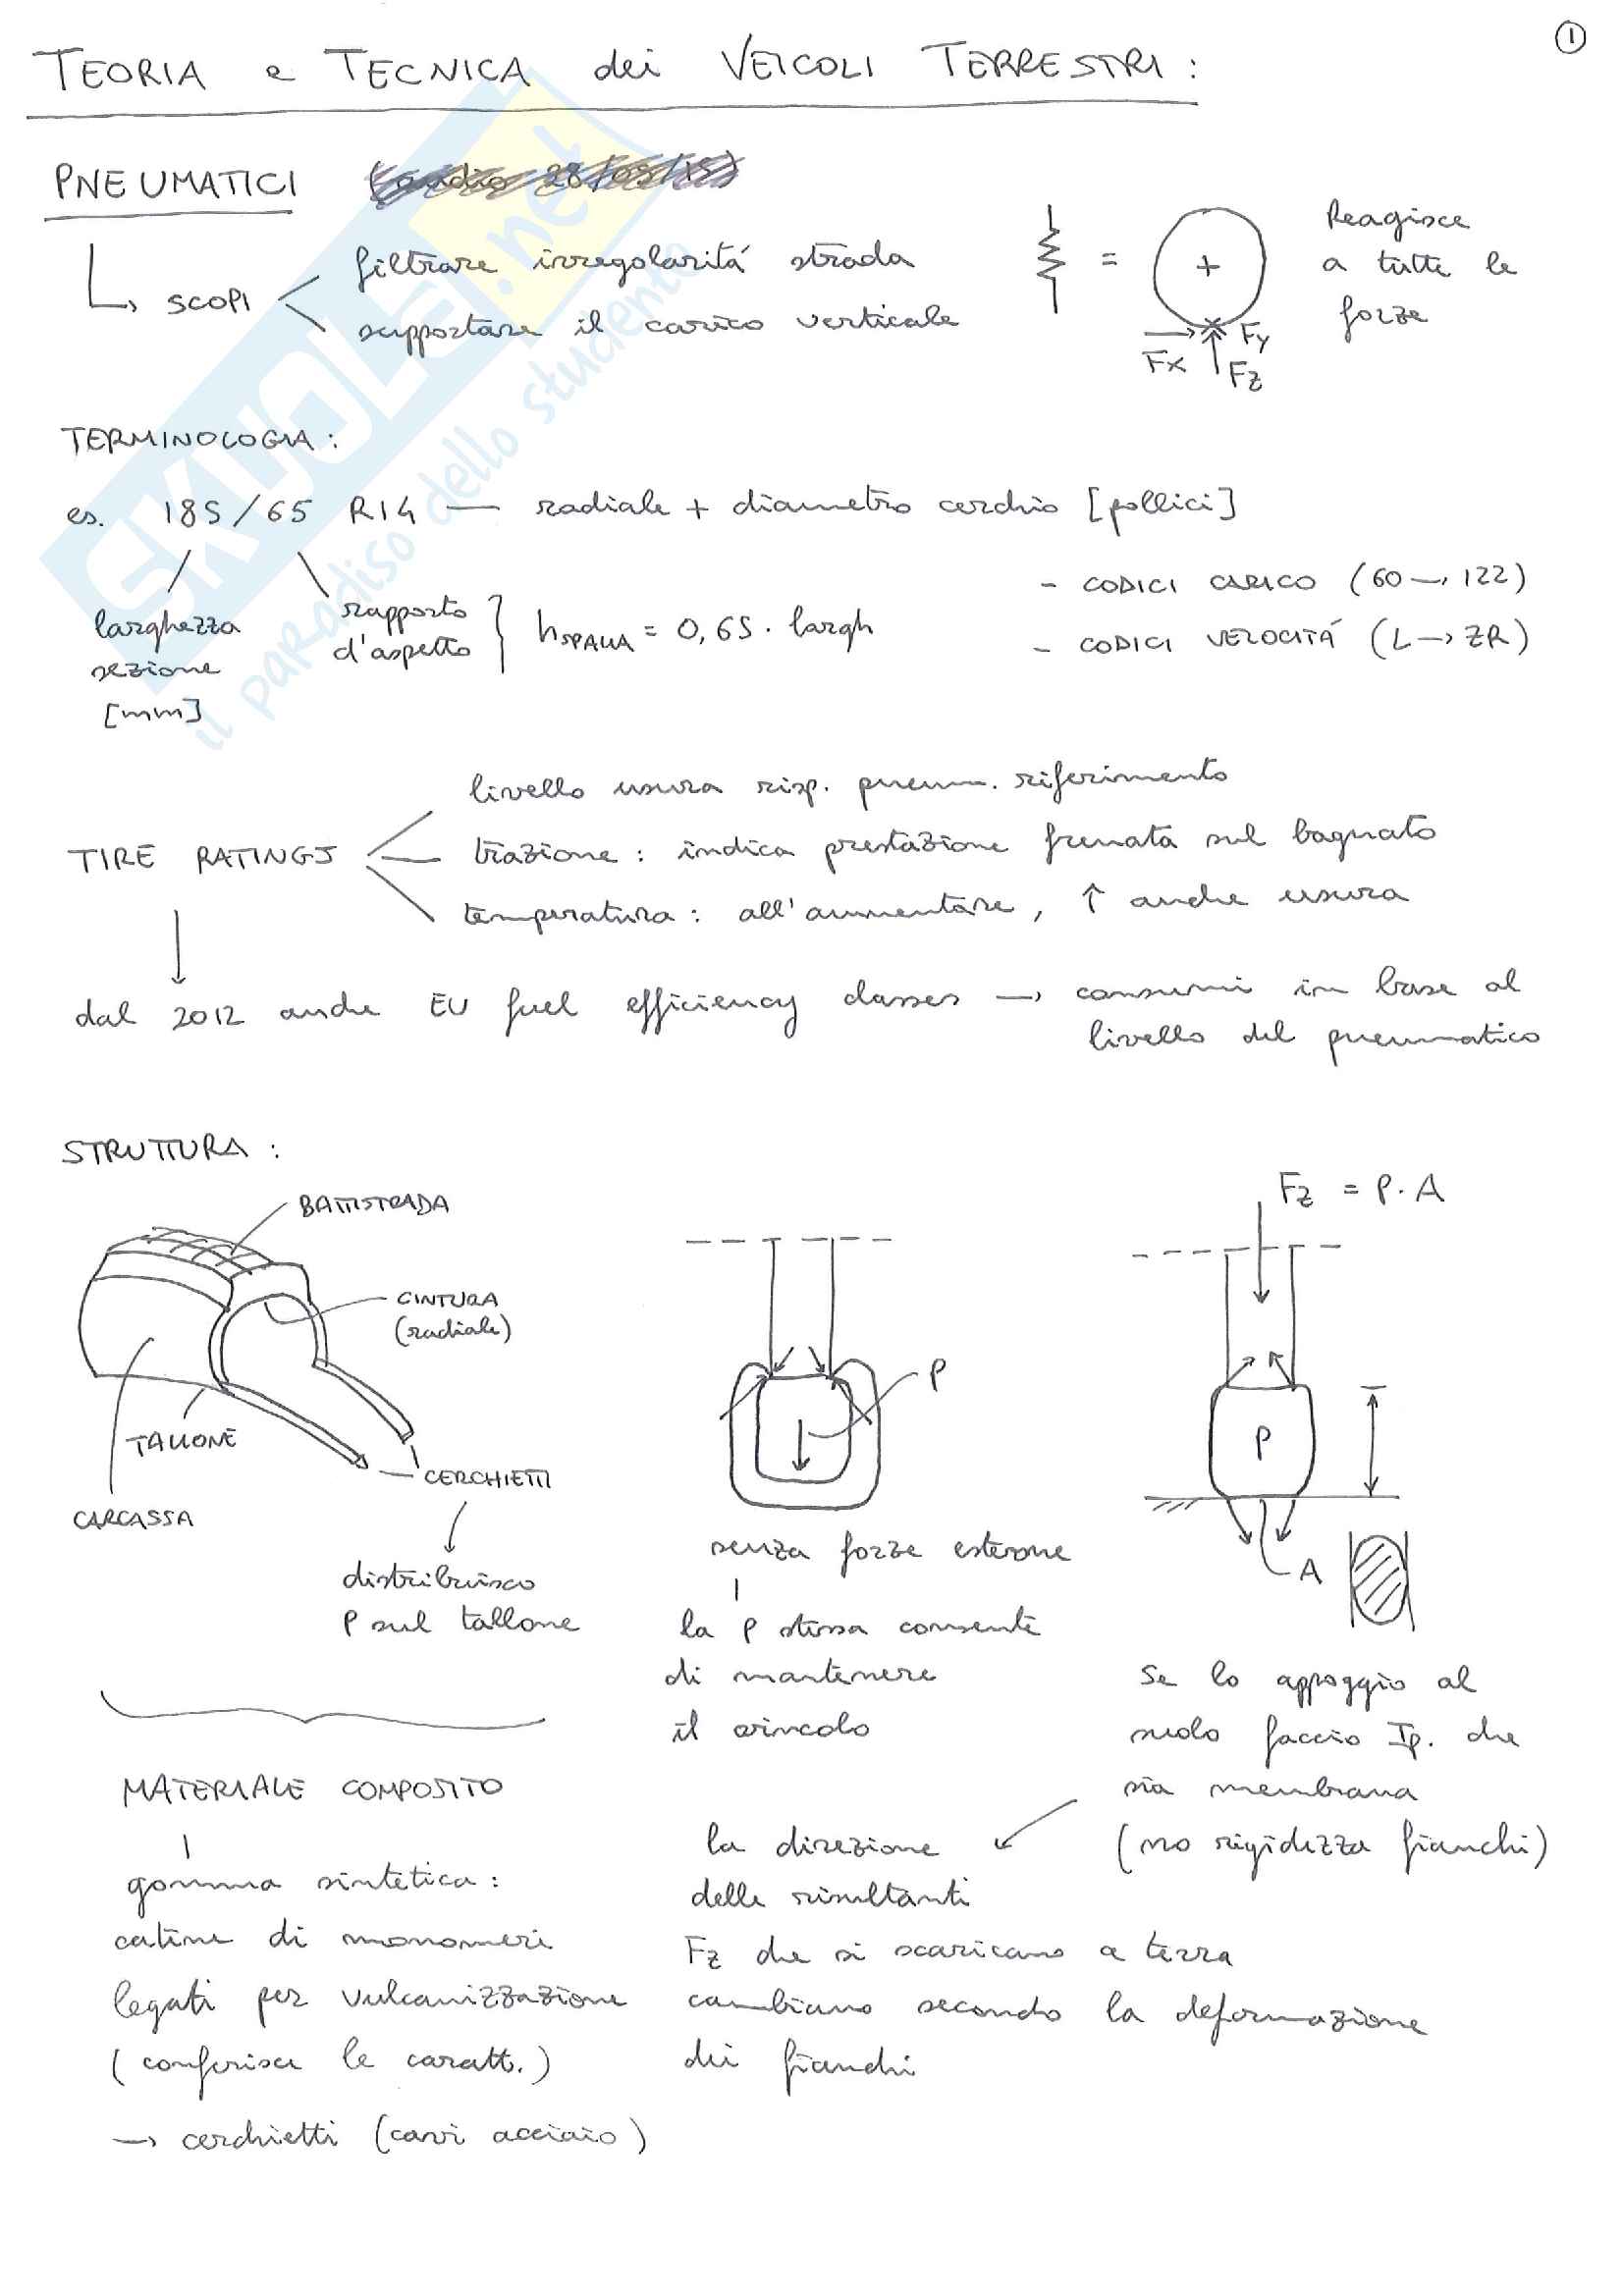 1
TEORIA e TECNICA dei VEICOLI TERRESTRI:
PNEUMATICI
SCOPI
filtrare irregolaritá strada
supportare il carico verticale
=
+
Fx
Fy
Fz
Reagisce
a tutte le
forze
TERMINOLOGIA:
es. 185/65 R14 — radiale + diametro cerchio [pollici]
larghezza
sezione
[mm]
rapporto
d'aspetto
hSPALLA = 0,65 · largh
- CODICI CARICO (60 → 122)
- CODICI VELOCITÁ (L → ZR)
TIRE RATINGS
livello usura risp. pneum. riferimento
trazione: indica prestazione frenata sul bagnato
temperatura: all'aumentare, ↑ anche usura
dal 2012 anche EU fuel efficiency classes → consumi in base al
livello del pneumatico
STRUTTURA:
BATTISTRADA
CINTURA
(radiale)
TALLONE
CERCHIETTI
CARCASSA
distribuisco
P sul tallone
P
senza forze esterne
la P stessa consente
di mantenere
il vincolo
Fz = P · A
P
A
Se lo appoggio al
suolo faccio Ip. che
sia membrana
(no rigidezza fianchi)
la direzione
delle risultanti
Fz che si scaricano a terra
cambiano secondo la deformazione
dei fianchi
MATERIALE COMPOSITO
gomma sintetica:
catene di monomeri
legati per vulcanizzazione
(conferisce le caratt.)
→ cerchietti (cavi acciaio)
SKUOLA.net
il paradiso dello studente